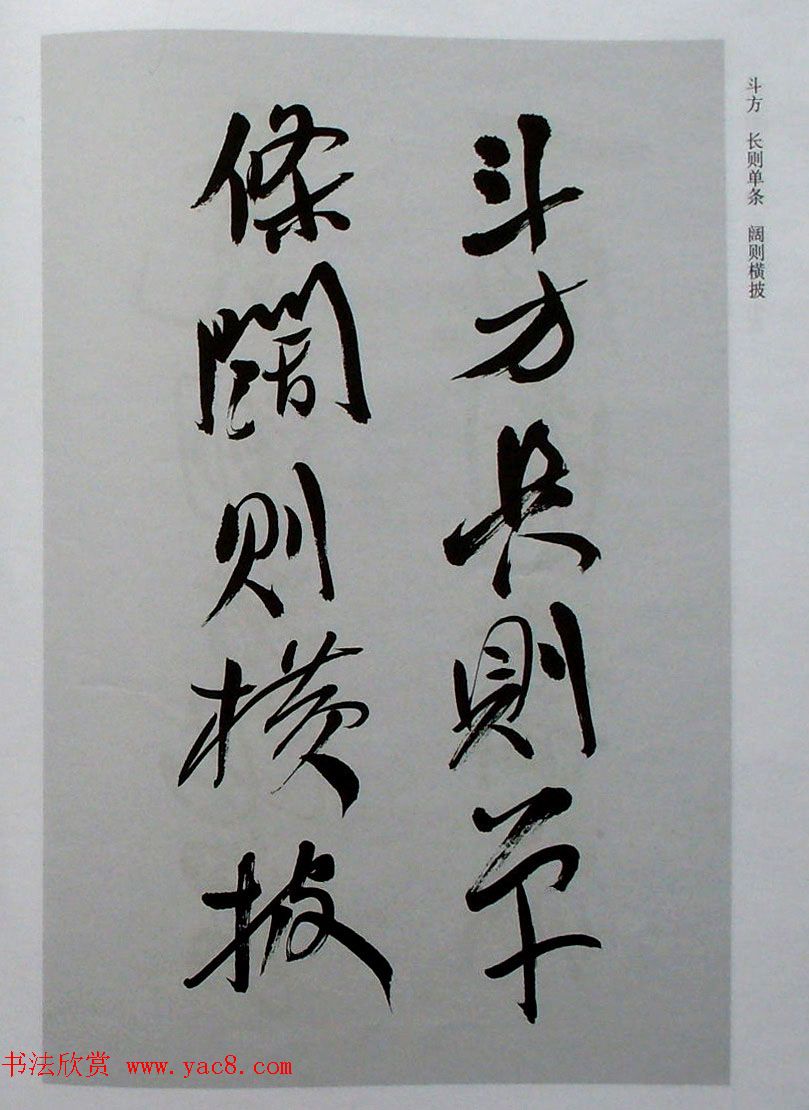 斗方 长则单条 阔则横披
斗方长則单
條闊则横披
书法欣赏 www.yac8.com